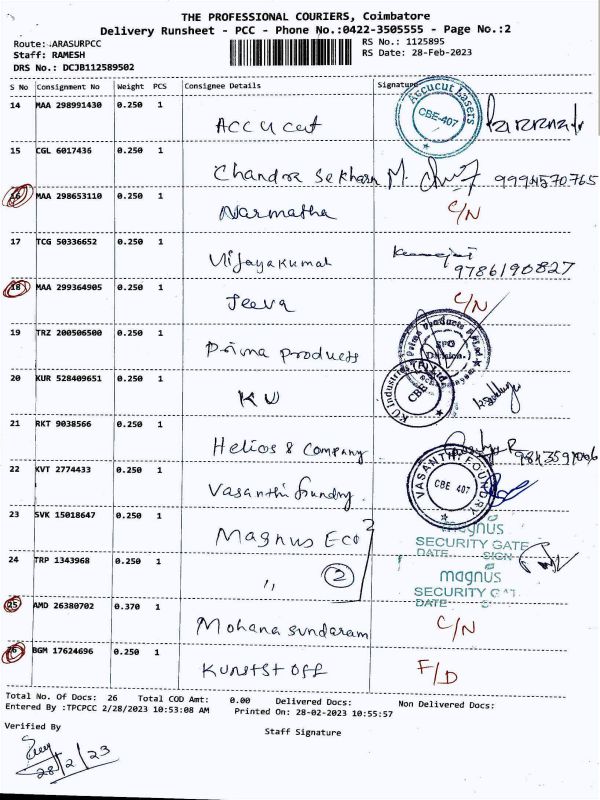 THE PROFESSIONAL COURIERS, Coimbatore
Delivery Runsheet - PCC - Phone No.:0422-3505555 - Page No.:2
Route: ARASURPCC
RS No.: 1125895
Staff: RAMESH
RS Date: 28-Feb-2023
DRS No.: DCJB112589502
S No Consignment No Weight PCS Consignee Details Signature
14 MAA 298991430 0.250 1 Accucut Accucut Lasers CBE-407
15 CGL 6017436 0.250 1 Chandra Sekharn M. 9994570765
16 MAA 298653110 0.250 1 Narmatha C/N
17 TCG 50336652 0.250 1 Vijayakumar 9786190827
18 MAA 299364905 0.250 1 Jeeva C/N
19 TRZ 200506500 0.250 1 Prima products SPG Division
20 KUR 528409651 0.250 1 KU KU Industries (P) Ltd CBE
21 RKT 9038566 0.250 1 Helios & Company
22 KVT 2774433 0.250 1 Vasanthi foundry. VASANTHI FOUNDRY CBE 407
23 SVK 15018647 0.250 1 Magnus Eco magnus
SECURITY GATE
DATE SIGN
24 TRP 1343968 0.250 1 " 2 magnus
SECURITY GAT
DATE
25 AMD 26380702 0.370 1 Mohana sundaram C/N
26 BGM 17624696 0.250 1 Kunststoff F/D
Total No. Of Docs: 26 Total COD Amt: 0.00 Delivered Docs: Non Delivered Docs:
Entered By :TPCPCC 2/28/2023 10:53:08 AM Printed On: 28-02-2023 10:55:57
Verified By
Staff Signature
28/2/23